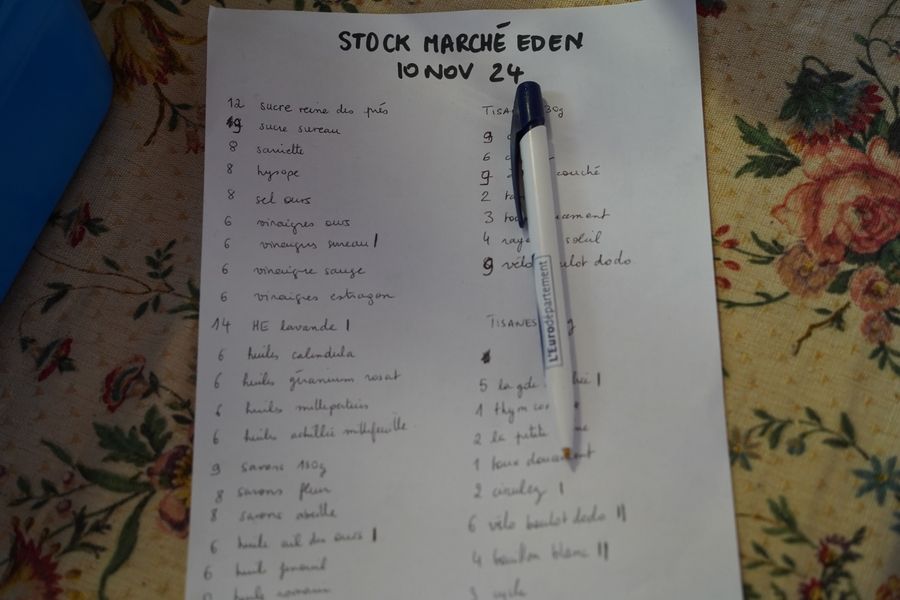 STOCK MARCHÉ EDEN
10 NOV 24
12 sucre reine des prés
19 sucre sureau
8 sariette
8 hysope
8 sel ours
6 vinaigres ours
6 vinaigres sureau |
6 vinaigre sauge
6 vinaigres estragon
14 HE lavande |
6 huiles calendula
6 huiles géranium rosat
6 huiles millepertuis
6 huiles achillée millefeuille
9 savons 130g
8 savons fleur
8 savons abeille
6 huile ail des ours |
6 huile
huile romarin
30g
9
6
9 couché
2
3
4 soleil
9 vélo boulot dodo
TISANES
5 la gde |
1 thym
2 la petite
1 toux doucement
2 circulez |
6 vélo boulot dodo ||
4 bouillon blanc ||
cycle
L'Eurodépartement